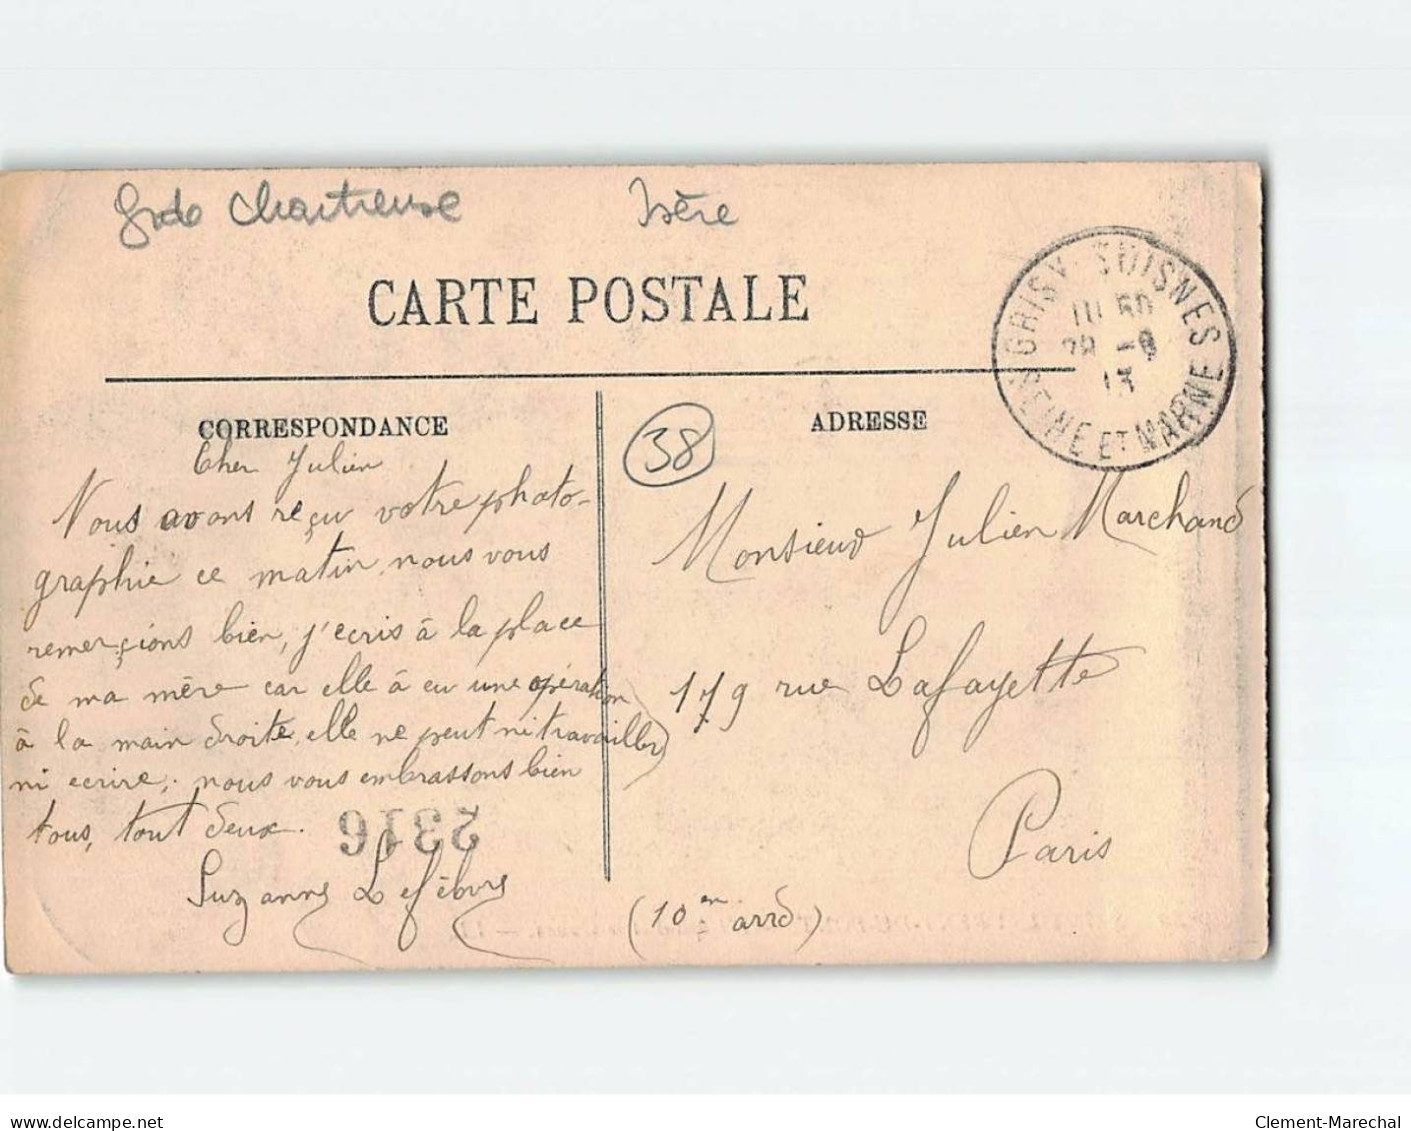 Grde Chartreuse
Isère
CARTE POSTALE
GRISY SUISNES
28 -8
13
SEINE ET MARNE
CORRESPONDANCE
38
ADRESSE
Cher Julien
Nous avons reçu votre photo-
graphie ce matin, nous vous
remerçions bien, j'ecris à la place
de ma mère car elle à eu une opération
à la main droite, elle ne peut ni travailler
ni ecrire, nous vous embrassons bien
tous, tout deux.
2316
Suzanne Lefèbvre
Monsieur Julien Marchand
179 rue Lafayette
Paris
(10 em arrd)
www.delcampe.net
Clement-Marechal